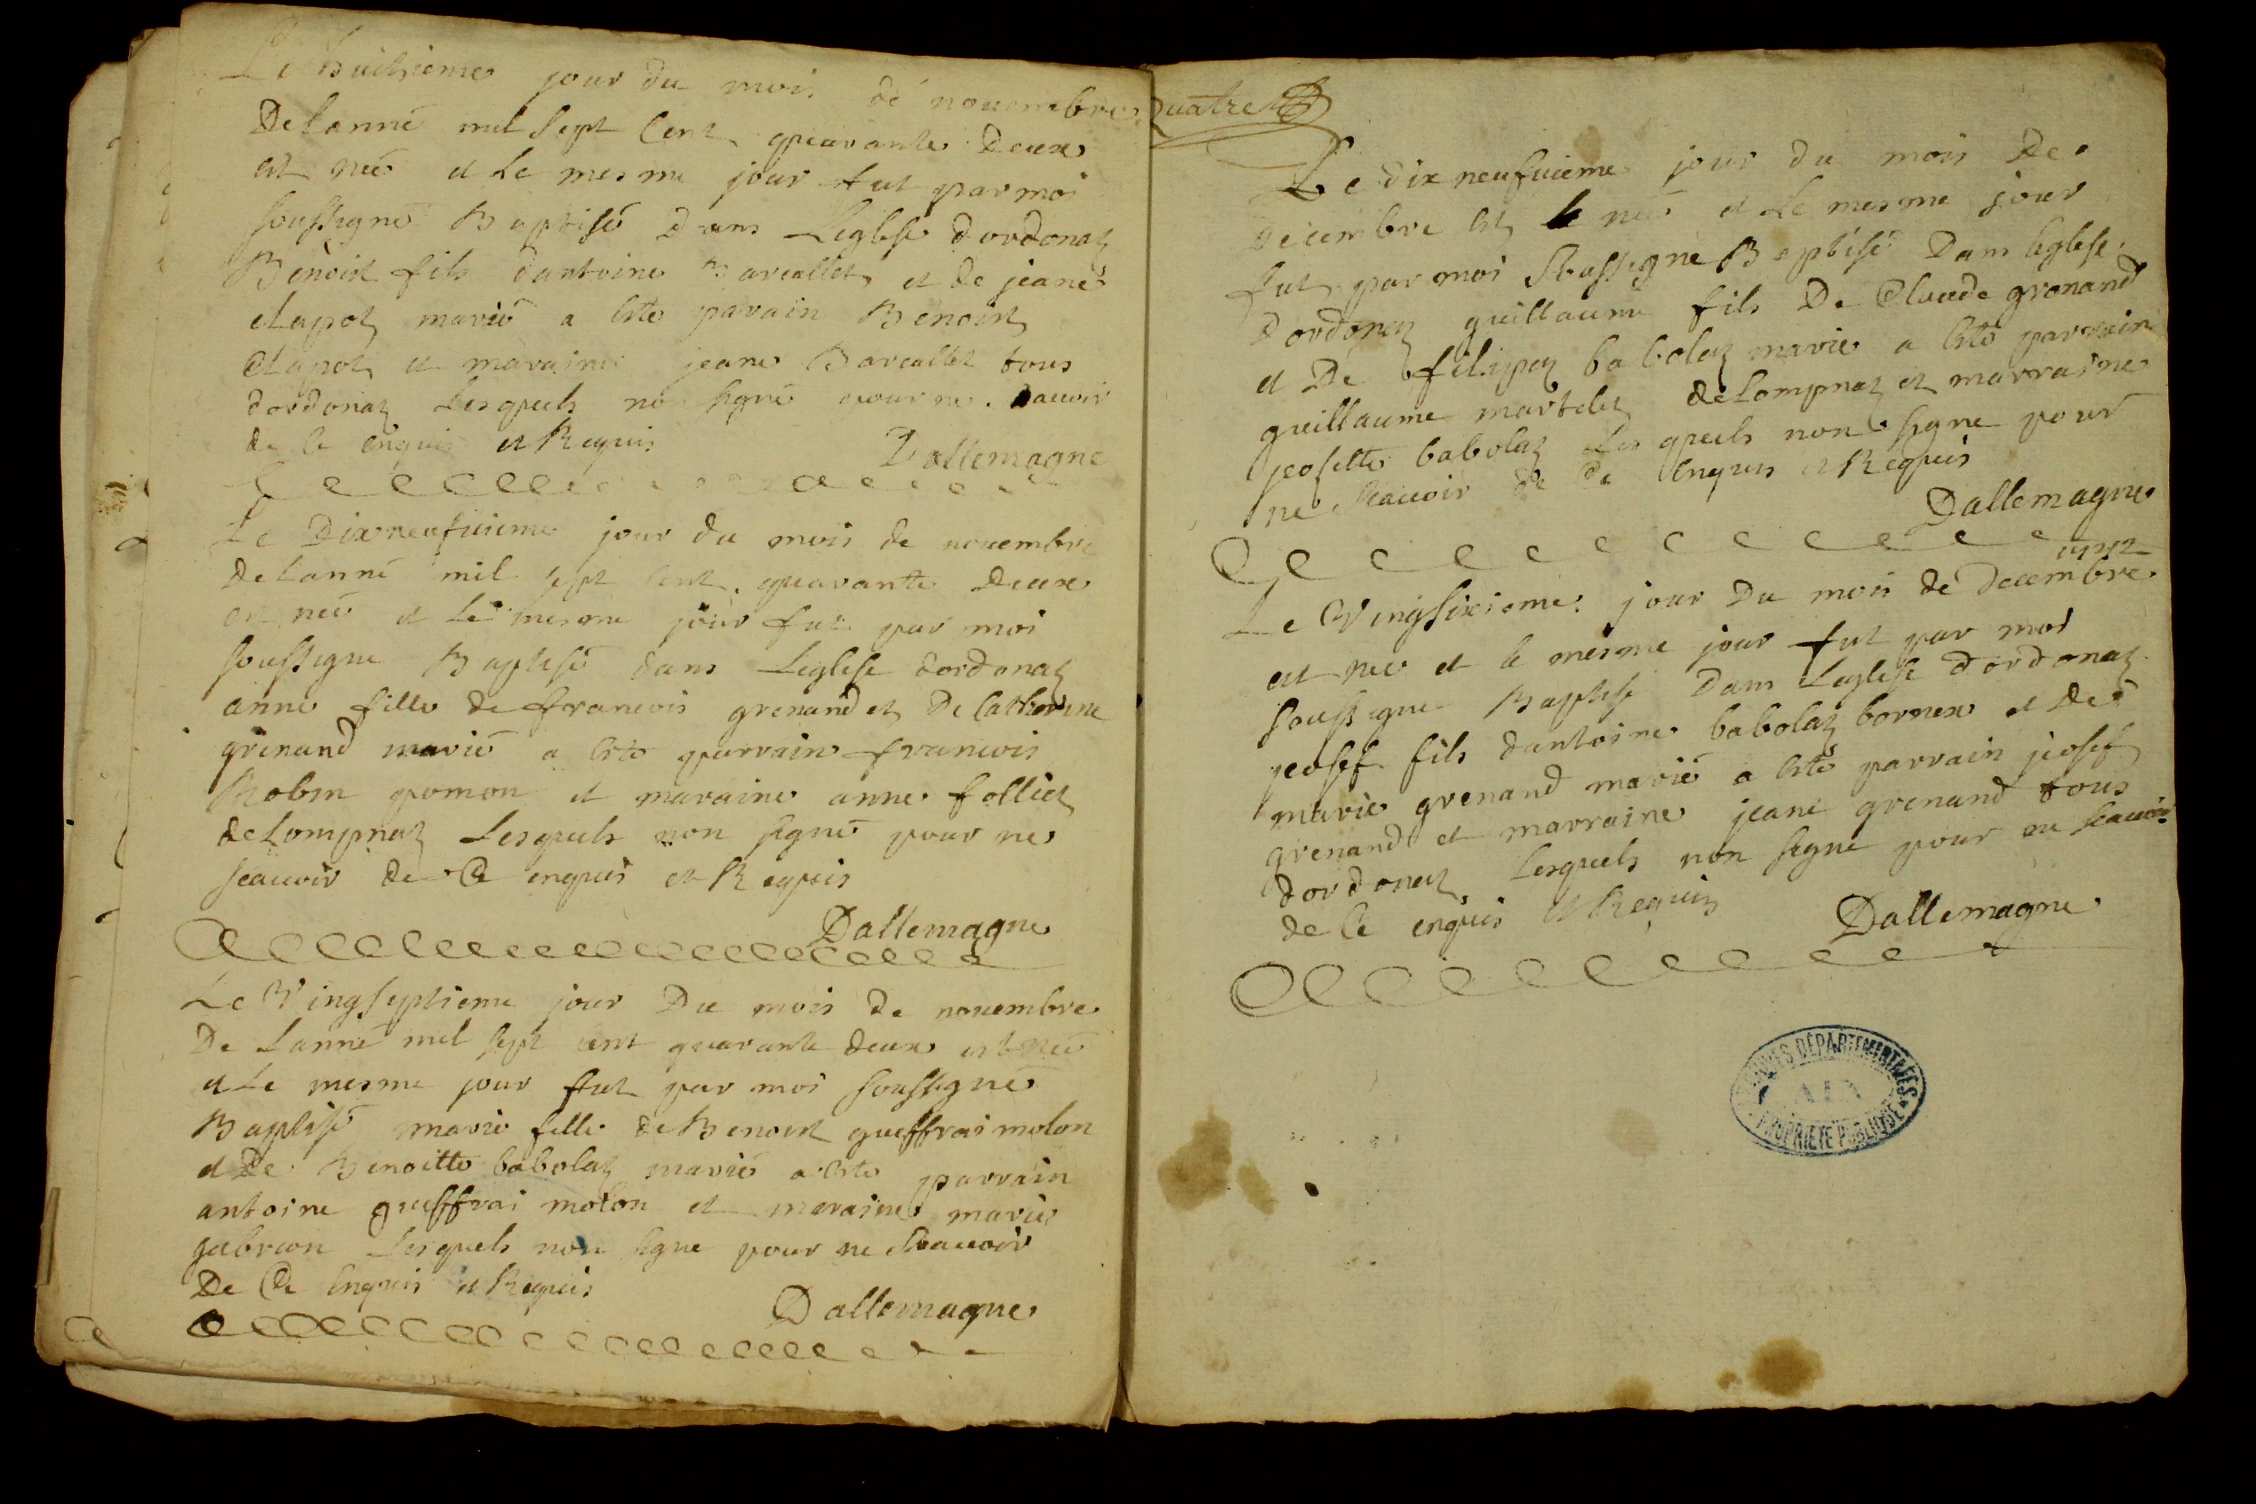 Le Huitsieme jour du mois de nouembre
De lanné mil sept Cent quarante Deux
est neé et Le mesme jour fut par moi
soussigné Baptisé Dans Leglise dordonaz
Benoist fils dantoine Barcallet et de jeané
Clapot marié a lité parain Benoist
Clapot et maraine jeane Barcallet tous
dordonaz Lesquels no signé pour ne sauoir
de Ce enquis et Requis
Dallemagne
Le Dixneufuieme jour du mois de nouembre
de lanné mil sept Cent quarante Deux
est neé et Le mesme jour fut par moi
soussigne Baptisé dans Leglise dordonaz
anne fille de francois grenand et De Catherine
grenand marié a lité parrain francois
Robin pomon et maraine anne folliet
de Lompnaz Lesquels non signé pour ne
scauoir de Ce enquis et Requis
Dallemagne
Le Vingseptieme jour Du mois de nouembre
De Lanné mil sept cent quarante deux est neé
et Le mesme jour fut par moi soussigné
Baptisé marie fille de Benoist gueffrai molon
et De Benoitte babolaz marié a lité parrain
antoine gueffrai molon et maraine marie
gabrion Lesquels non signe pour ne scauoir
De Ce Enquis et Requis
Dallemagne
quatre
Le dix neufuieme jour du mois De
Decembre est neé et Le mesme jour
fut par moi soussigné Baptisé Dans leglise
dordonaz guillaume fils De Claude gronand
et De filipaz babolaz marié a lité parrain
guillaume martelet de Lompnaz et marraine
josette babolaz Les quels non signe pour
ne scauoir de Ce Enquis et Requis
Dallemagne
1742
Le Vingsixieme jour Du mois de Decembre
est neé et le mesme jour fut par moi
soussigne Baptisé Dans Leglise dordonaz
jeosef fils dantoine babolaz bornex et De
marie grenand marié a lité parrain jeosef
grenand et marraine jeane grenand tous
dordonaz Lesquels non signe pour ne scauoir
de Ce enquis et Requis
Dallemagne
ARCHIVES DÉPARTEMENTALES
AIN
PROPRIÉTÉ PUBLIQUE